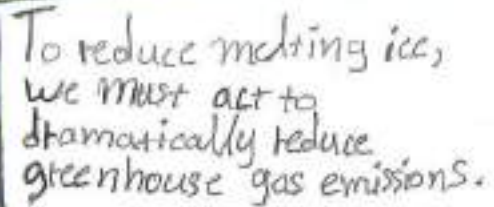 To reduce melting ice,
we must act to
dramatically reduce
greenhouse gas emissions.